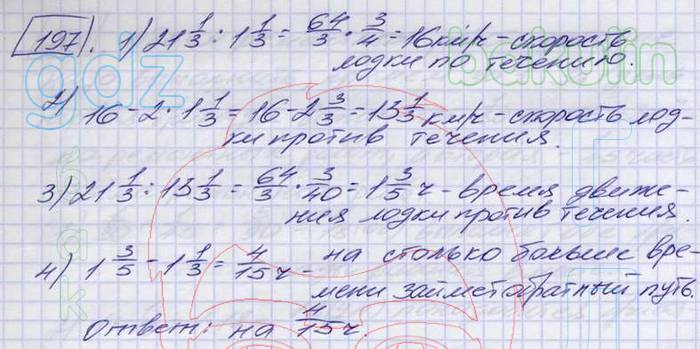 197. 1) 21 1/3 : 1 1/3 = 64/3 · 3/4 = 16 км/ч - скорость
лодки по течению.
2) 16 - 2 · 1 1/3 = 16 - 2 2/3 = 13 1/3 км/ч - скорость лод-
ки против течения.
3) 21 1/3 : 13 1/3 = 64/3 · 3/40 = 1 3/5 ч - время движе-
ния лодки против течения.
4) 1 3/5 - 1 1/3 = 4/15 ч - на столько больше вре-
мени займет обратный путь.
Ответ: на 4/15 ч.
gdz